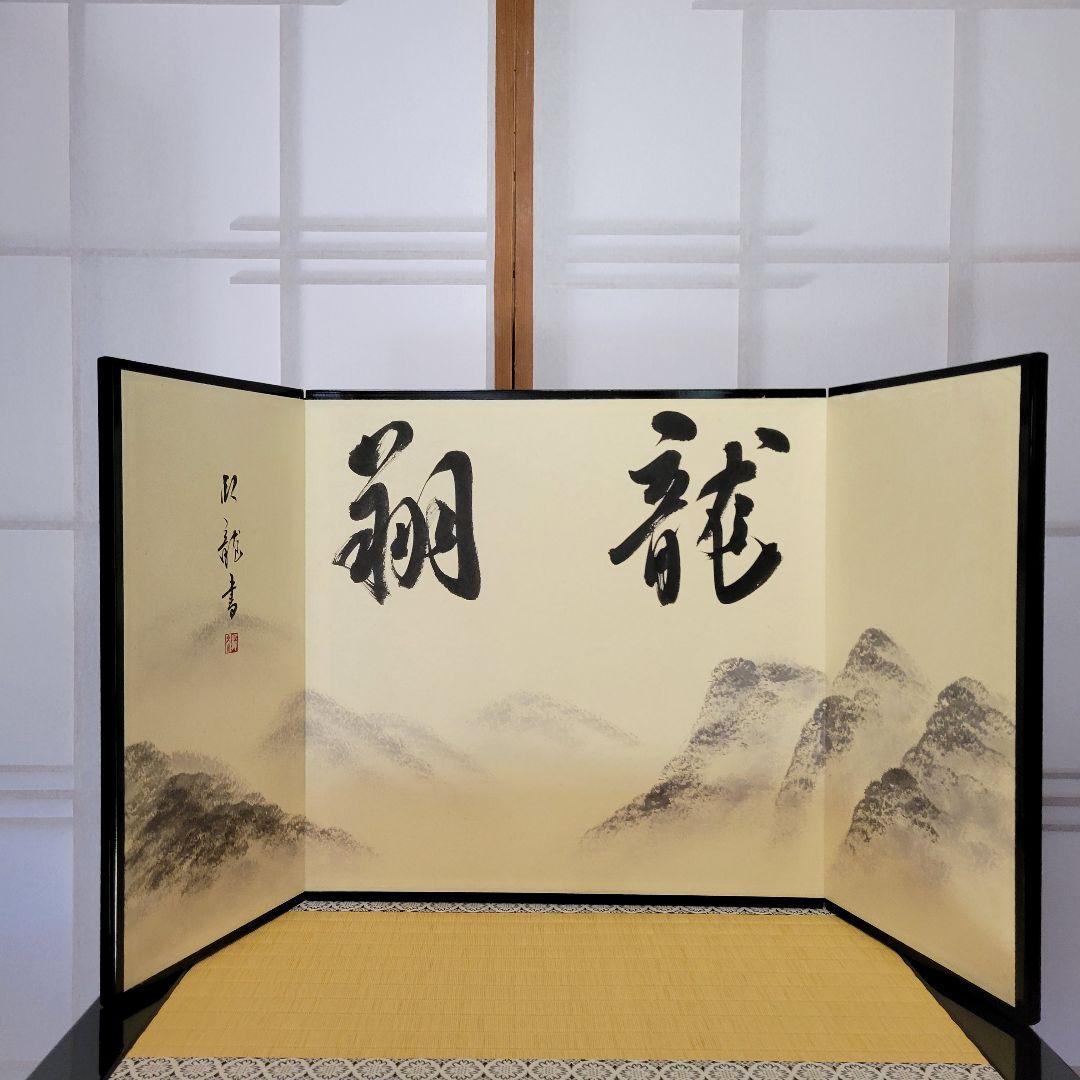 龍翔
臥龍書